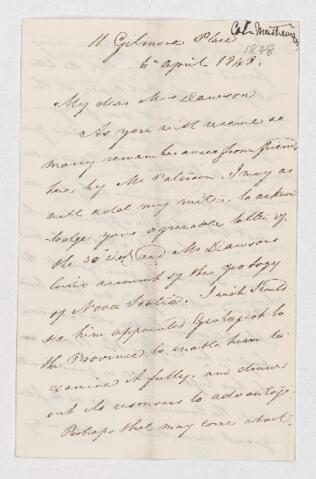 Col. Mathewson
1848
11 Gilmore Place
6th April 1848.
My dear Mrs Dawson
As you will receive so
many remembrances from friends
here, by Mr Paterson. I may as
well add my mite. to acknow
ledge your agreeable letter of
the 30 and Mr Dawsons
account of the geology
of Nova Scotia. I wish I could
see him appointed Geologist to
the Province, to enable him to
examine it fully. and draw
out its resources to advantage.
Perhaps that may come about.